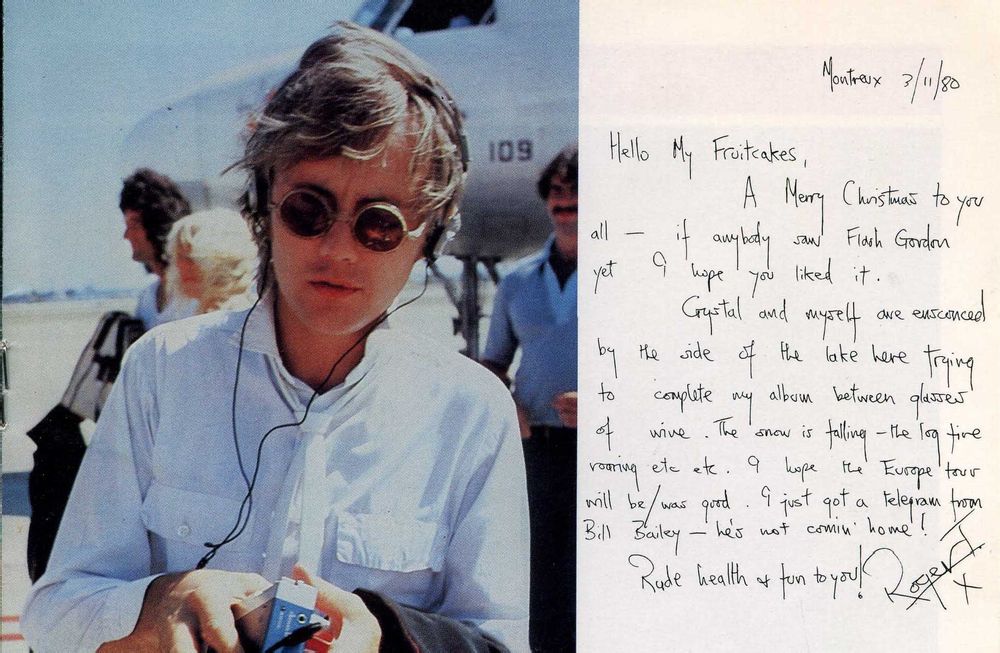 109
Montreux 3/11/80
Hello My Fruitcakes,
A Merry Christmas to you
all — if anybody saw Flash Gordon
yet I hope you liked it.
Crystal and myself are ensconced
by the side of the lake here trying
to complete my album between glasses
of wine. The snow is falling - the log fire
roaring etc etc. I hope the Europe tour
will be/was good. I just got a telegram from
Bill Bailey — he's not comin' home!
Rude health & fun to you! Roger T
X